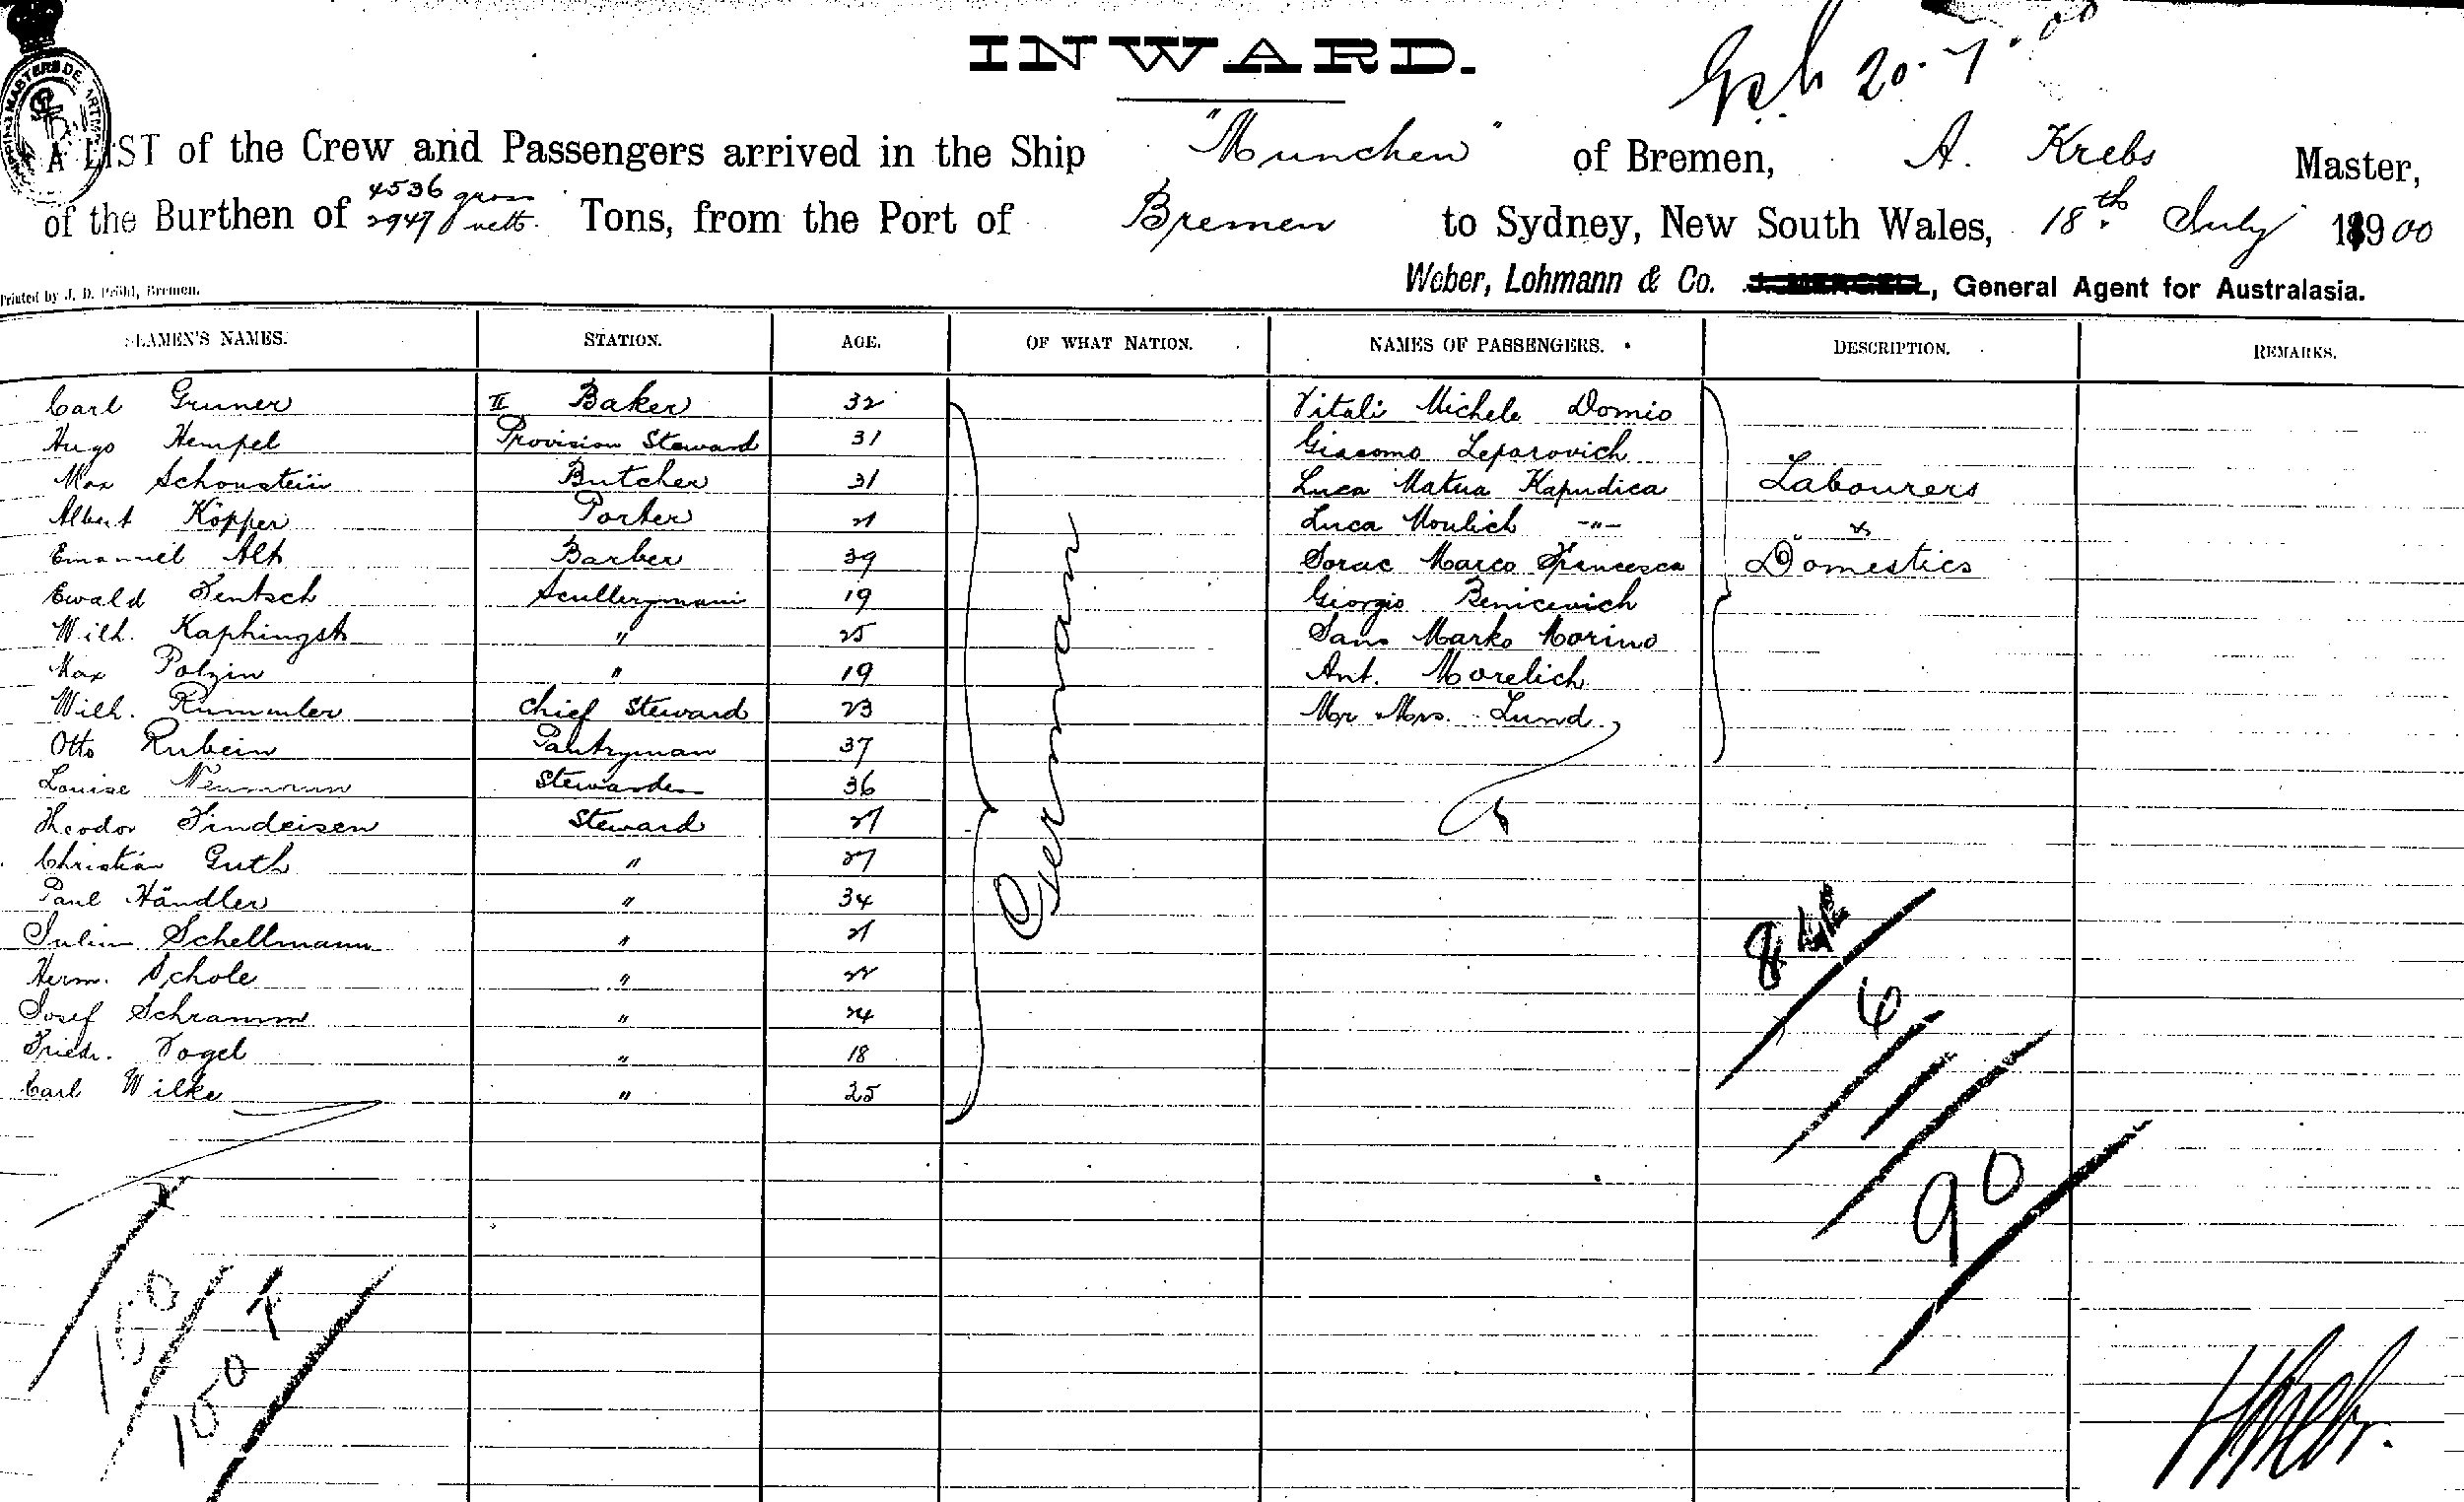 INWARD.
20.7.00
A LIST of the Crew and Passengers arrived in the Ship "Munchen" of Bremen, A. Krebs Master,
of the Burthen of 4536 gross 2947 nett. Tons, from the Port of Bremen to Sydney, New South Wales, 18th July 1900
Weber, Lohmann & Co. J. MERGELL, General Agent for Australasia.
Printed by J. D. Pröhl, Bremen.
SEAMEN'S NAMES. STATION. AGE. OF WHAT NATION. NAMES OF PASSENGERS. DESCRIPTION. REMARKS.
Carl Gruner II Baker 32 Vitali Michele Domio
Hugo Hempel Provision Steward 31 Giacomo Leparovich
Max Schonstein Butcher 31 Luca Matua Kapudica Labourers
Albert Köpper Porter 21 Luca Moulich -"- &
Emanuel Alt Barber 39 Sorac Marco Francesca Domestics
Ewald Jentsch Scullerymann 19 Giorgio Benicevich
Wilh. Kaphingst " 25 Sans Marko Marino
Max Polzin " 19 Ant. Morelich
Wilh. Rummler Chief Steward 23 Mr Mrs. Lund
Otto Rubein Pantryman 37
Louise Neumann Stewardess 36
Theodor Findeisen Steward 21
Christian Guth " 27
Paul Händler " 34
Julius Schellmann " 21
Herm. Schole " 22
Josef Schramm " 24
Friedr. Vogel " 18
Carl Wilke " 25
German
8
6
90
100
100